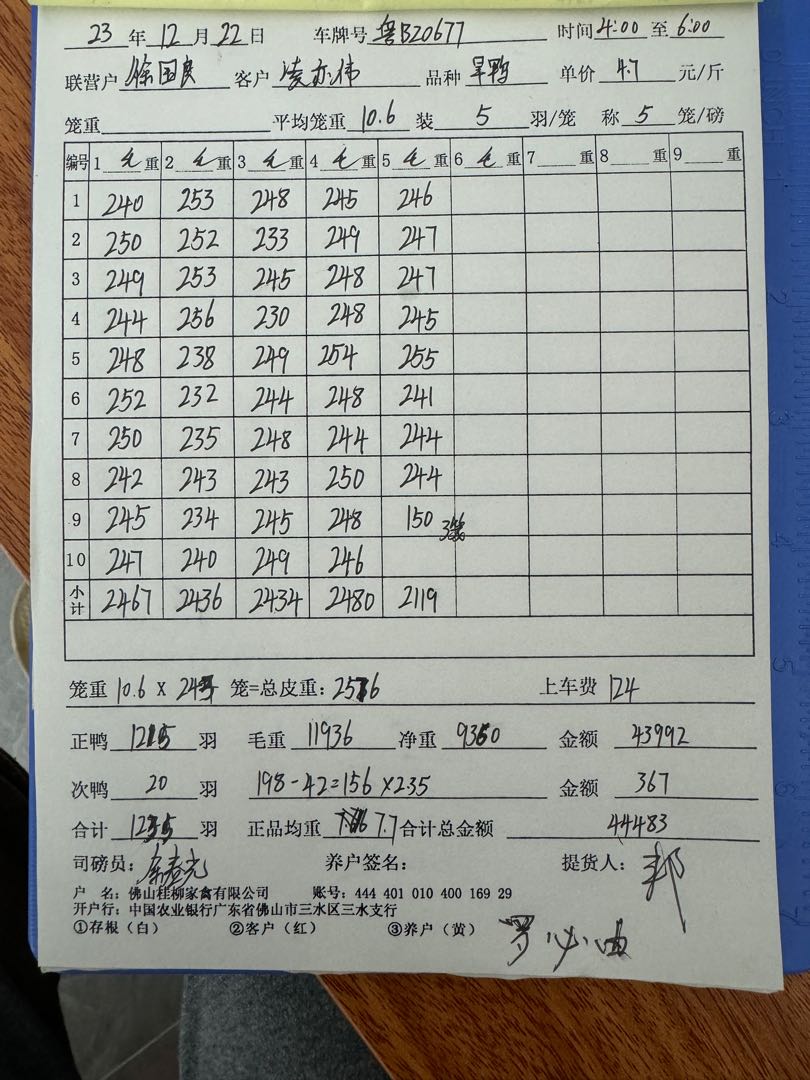 23 年 12 月 22 日 车牌号 鲁B20677 时间 4:00 至 6:00
联营户 徐国良 客户 凌亦伟 品种 旱鸭 单价 4.7 元/斤
笼重 平均笼重 10.6 装 5 羽/笼 称 5 笼/磅
编号 1 毛 重 2 毛 重 3 毛 重 4 毛 重 5 毛 重 6 毛 重 7 重 8 重 9 重
1 240 253 248 245 246
2 250 252 233 249 247
3 249 253 245 248 247
4 244 256 230 248 245
5 248 238 249 254 255
6 252 232 244 248 241
7 250 235 248 244 244
8 242 243 243 250 244
9 245 234 245 248 150
10 247 240 249 246
小计 2467 2436 2434 2480 2119
笼重 10.6 X 243 笼=总皮重: 2576 上车费 124
正鸭 1215 羽 毛重 11936 净重 9360 金额 43992
次鸭 20 羽 198-42=156×2.35 金额 367
合计 1235 羽 正品均重 7.7 合计总金额 44483
司磅员: 养户签名: 提货人: 邦
户 名: 佛山桂柳家禽有限公司 账号: 444 401 010 400 169 29
开户行: 中国农业银行广东省佛山市三水区三水支行
①存根(白) ②客户(红) ③养户(黄)